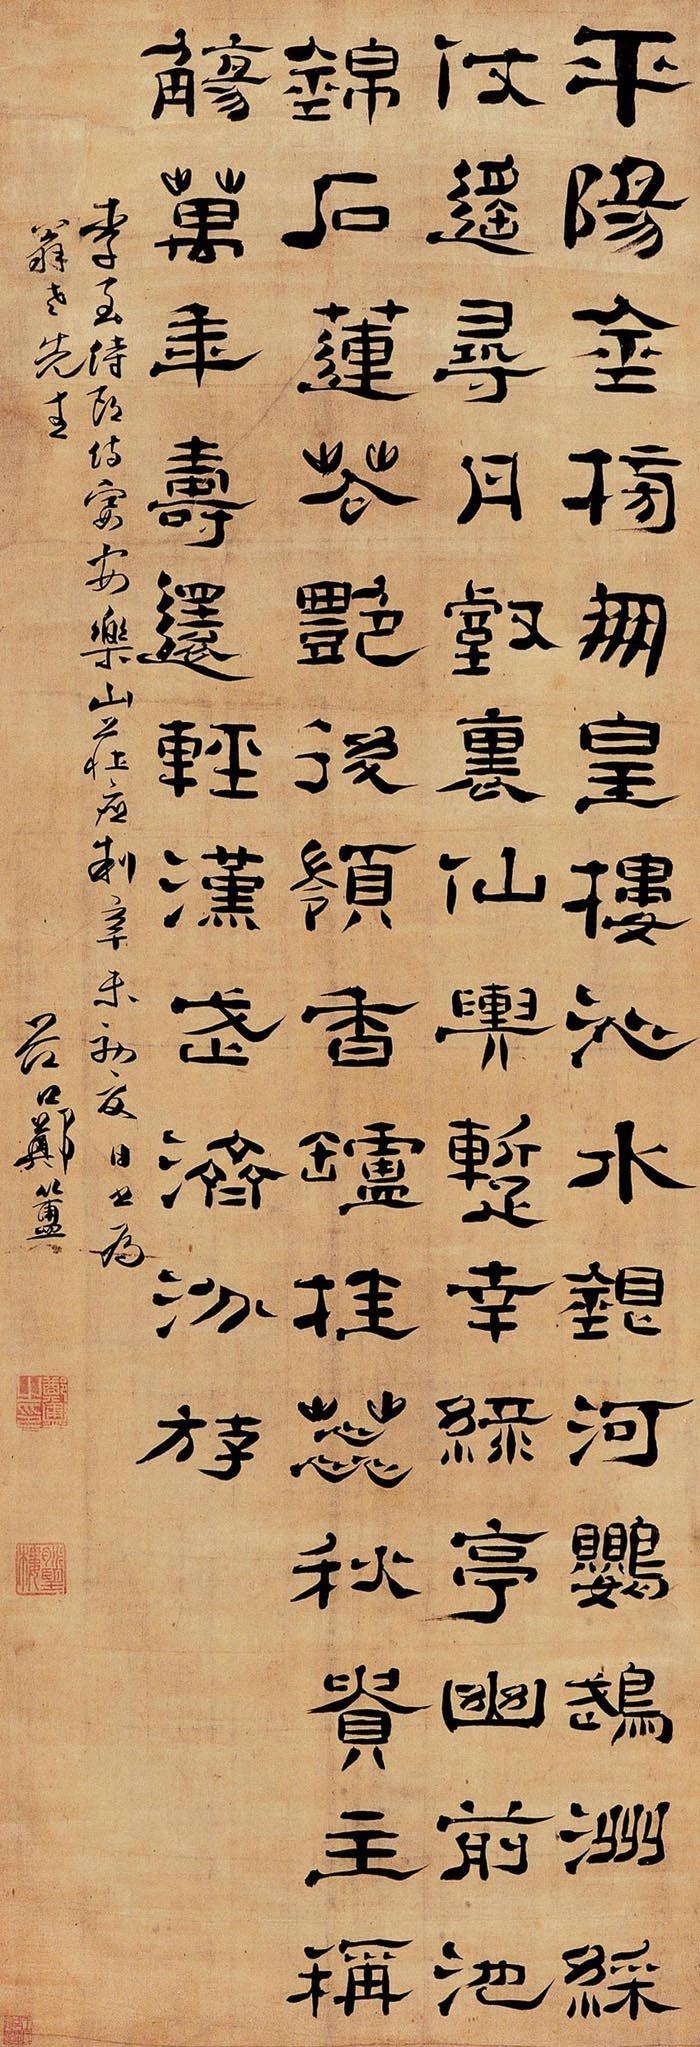 平陽金榜朋皇樓沁水銀河鸚鵡洲綵
仗遙尋丹壑裏仙輿蹔幸綠亭幽前池
錦石蓮花豔後嶺香鑪桂蕊秋貴主稱
觴萬年壽還輕漢武濟汾游
李侍郎侍宴安樂山莊應制辛未初夏日書為
老先生
谷口鄭簠
鄭簠之印